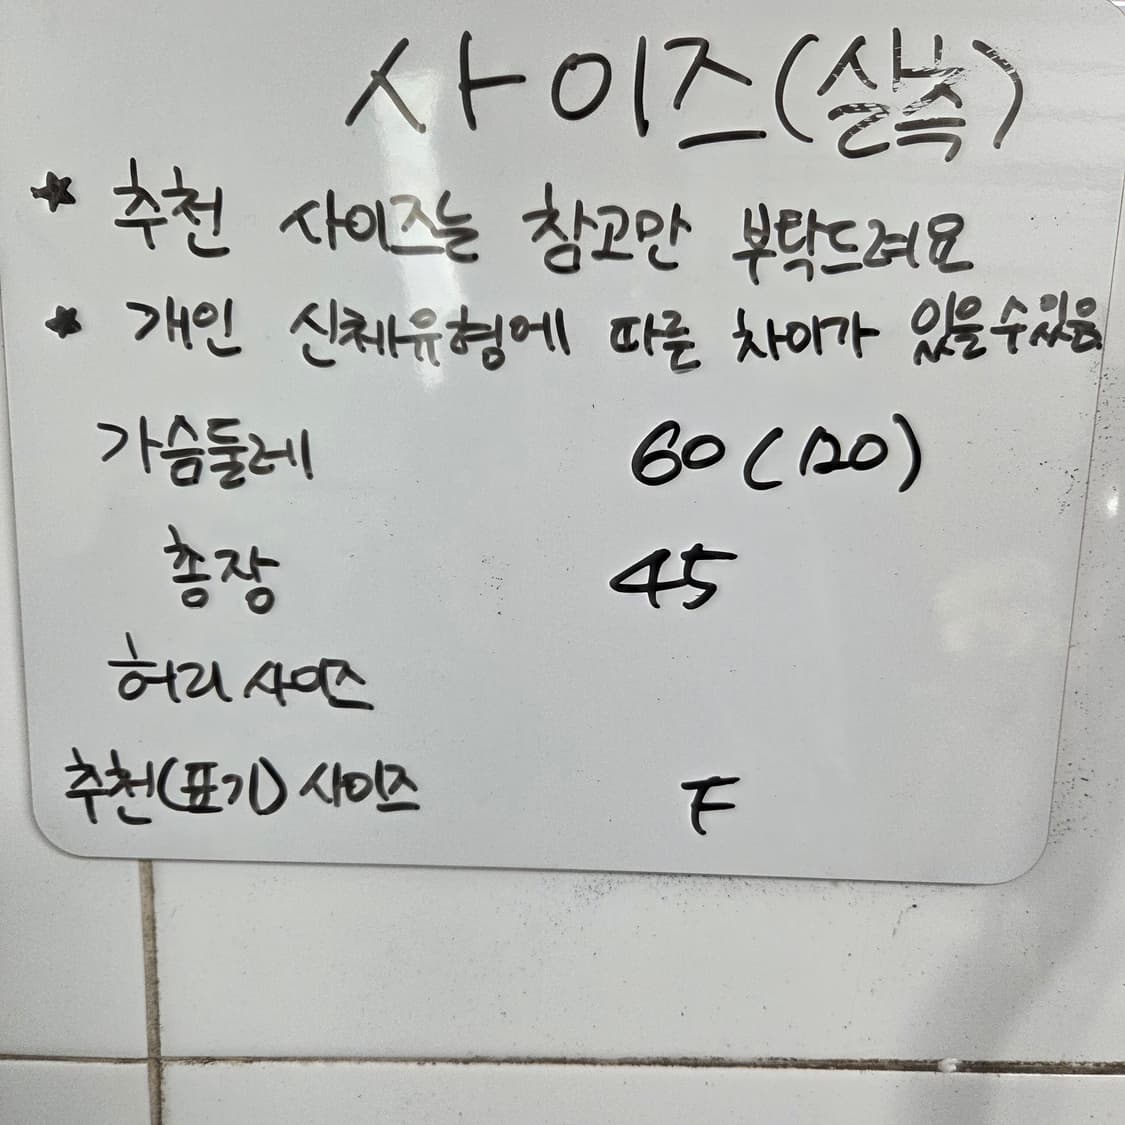 사이즈(실측)
★ 추천 사이즈는 참고만 부탁드려요
★ 개인 신체유형에 따른 차이가 있을수있음.
가슴둘레 60(120)
총장 45
허리 사이즈
추천(표기) 사이즈 F